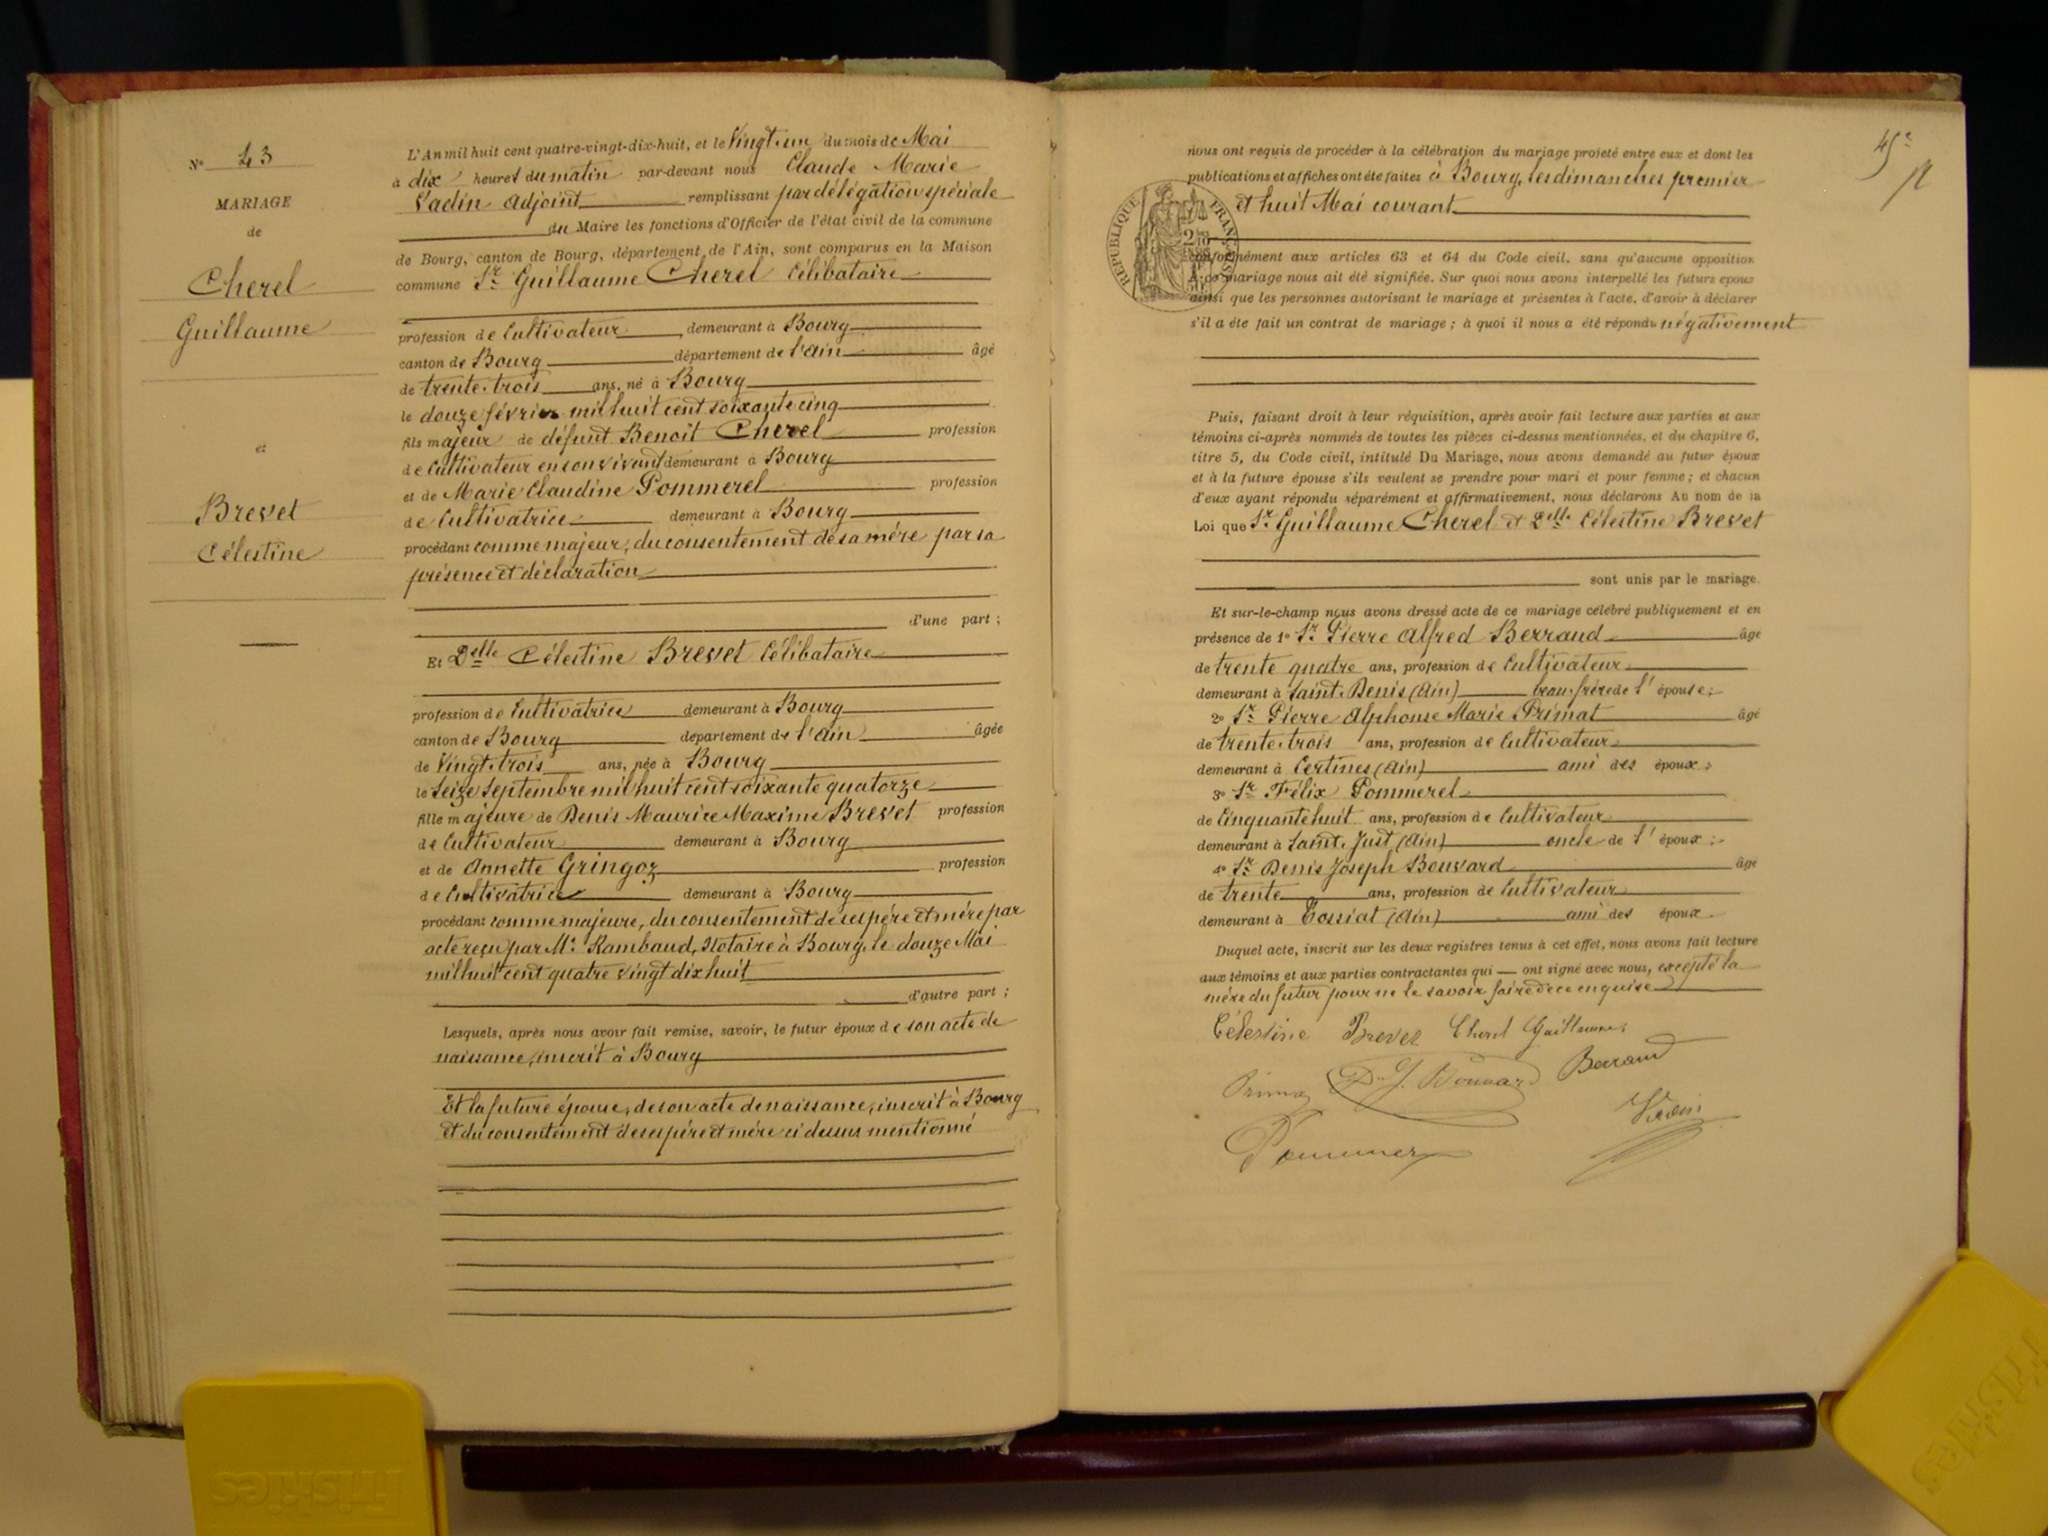 N° 43
MARIAGE
de
Cherel
Guillaume
et
Brevet
Célestine
L'An mil huit cent quatre-vingt-dix-huit, et le Vingt-un du mois de Mai
à dix heures du matin par-devant nous Claude Marie
Vadin Adjoint remplissant par délégation spéciale
du Maire les fonctions d'Officier de l'état civil de la commune
de Bourg, canton de Bourg, département de l'Ain, sont comparus en la Maison
commune Sr Guillaume Cherel Célibataire
profession de Cultivateur demeurant à Bourg
canton de Bourg département de l'Ain âgé
de trente-trois ans, né à Bourg
le douze février mil huit cent soixante cinq
fils majeur de défunt Benoît Cherel profession
de Cultivateur en son vivant demeurant à Bourg
et de Marie Claudine Pommerel profession
de Cultivatrice demeurant à Bourg
procédant comme majeur, du consentement de sa mère par sa
présence et déclaration
d'une part ;
Et Delle Célestine Brevet Célibataire
profession de Cultivatrice demeurant à Bourg
canton de Bourg département de l'Ain âgée
de Vingt-trois ans, née à Bourg
le Seize Septembre mil huit cent soixante quatorze
fille majeure de Denis Maurice Maxime Brevet profession
de Cultivateur demeurant à Bourg
et de Annette Gringoz profession
de Cultivatrice demeurant à Bourg
procédant comme majeure, du consentement de ses père et mère par
acte reçu par Me Rambaud, Notaire à Bourg, le douze Mai
mil huit cent quatre vingt dix huit
d'autre part ;
Lesquels, après nous avoir fait remise, savoir, le futur époux de son acte de
naissance, inscrit à Bourg
Et la future épouse, de son acte de naissance, inscrit à Bourg
et du consentement de ses père et mère ci dessus mentionné
45e
nous ont requis de procéder à la célébration du mariage projeté entre eux et dont les
publications et affiches ont été faites à Bourg, les dimanches premier
et huit Mai courant
RÉPUBLIQUE FRANÇAISE
conformément aux articles 63 et 64 du Code civil, sans qu'aucune opposition
à ce mariage nous ait été signifiée. Sur quoi nous avons interpellé les futurs époux
ainsi que les personnes autorisant le mariage et présentes à l'acte, d'avoir à déclarer
s'il a été fait un contrat de mariage ; à quoi il nous a été répondu négativement
Puis, faisant droit à leur réquisition, après avoir fait lecture aux parties et aux
témoins ci-après nommés de toutes les pièces ci-dessus mentionnées, et du chapitre 6,
titre 5, du Code civil, intitulé Du Mariage, nous avons demandé au futur époux
et à la future épouse s'ils veulent se prendre pour mari et pour femme ; et chacun
d'eux ayant répondu séparément et affirmativement, nous déclarons Au nom de la
Loi que Sr Guillaume Cherel et Delle Célestine Brevet
sont unis par le mariage.
Et sur-le-champ nous avons dressé acte de ce mariage célébré publiquement et en
présence de 1° Sr Pierre Alfred Berraud âgé
de trente quatre ans, profession de Cultivateur
demeurant à Saint-Denis (Ain) beau-frère de l'épouse ;
2° Sr Pierre Alphonse Marie Primat âgé
de trente-trois ans, profession de Cultivateur
demeurant à Certines (Ain) ami des époux ;
3° Sr Félix Pommerel
de Cinquante huit ans, profession de Cultivateur
demeurant à Saint-Just (Ain) oncle de l'époux ;
4° Sr Denis Joseph Bouvard âgé
de trente ans, profession de Cultivateur
demeurant à Tossiat (Ain) ami des époux.
Duquel acte, inscrit sur les deux registres tenus à cet effet, nous avons fait lecture
aux témoins et aux parties contractantes qui — ont signé avec nous, excepté la
mère du futur pour ne le savoir faire de ce enquise
Célestine Brevet Cherel Guillaume
Primat D. J. Bouvard Berraud
Vadin
Pommerel
Friskies
Friskies